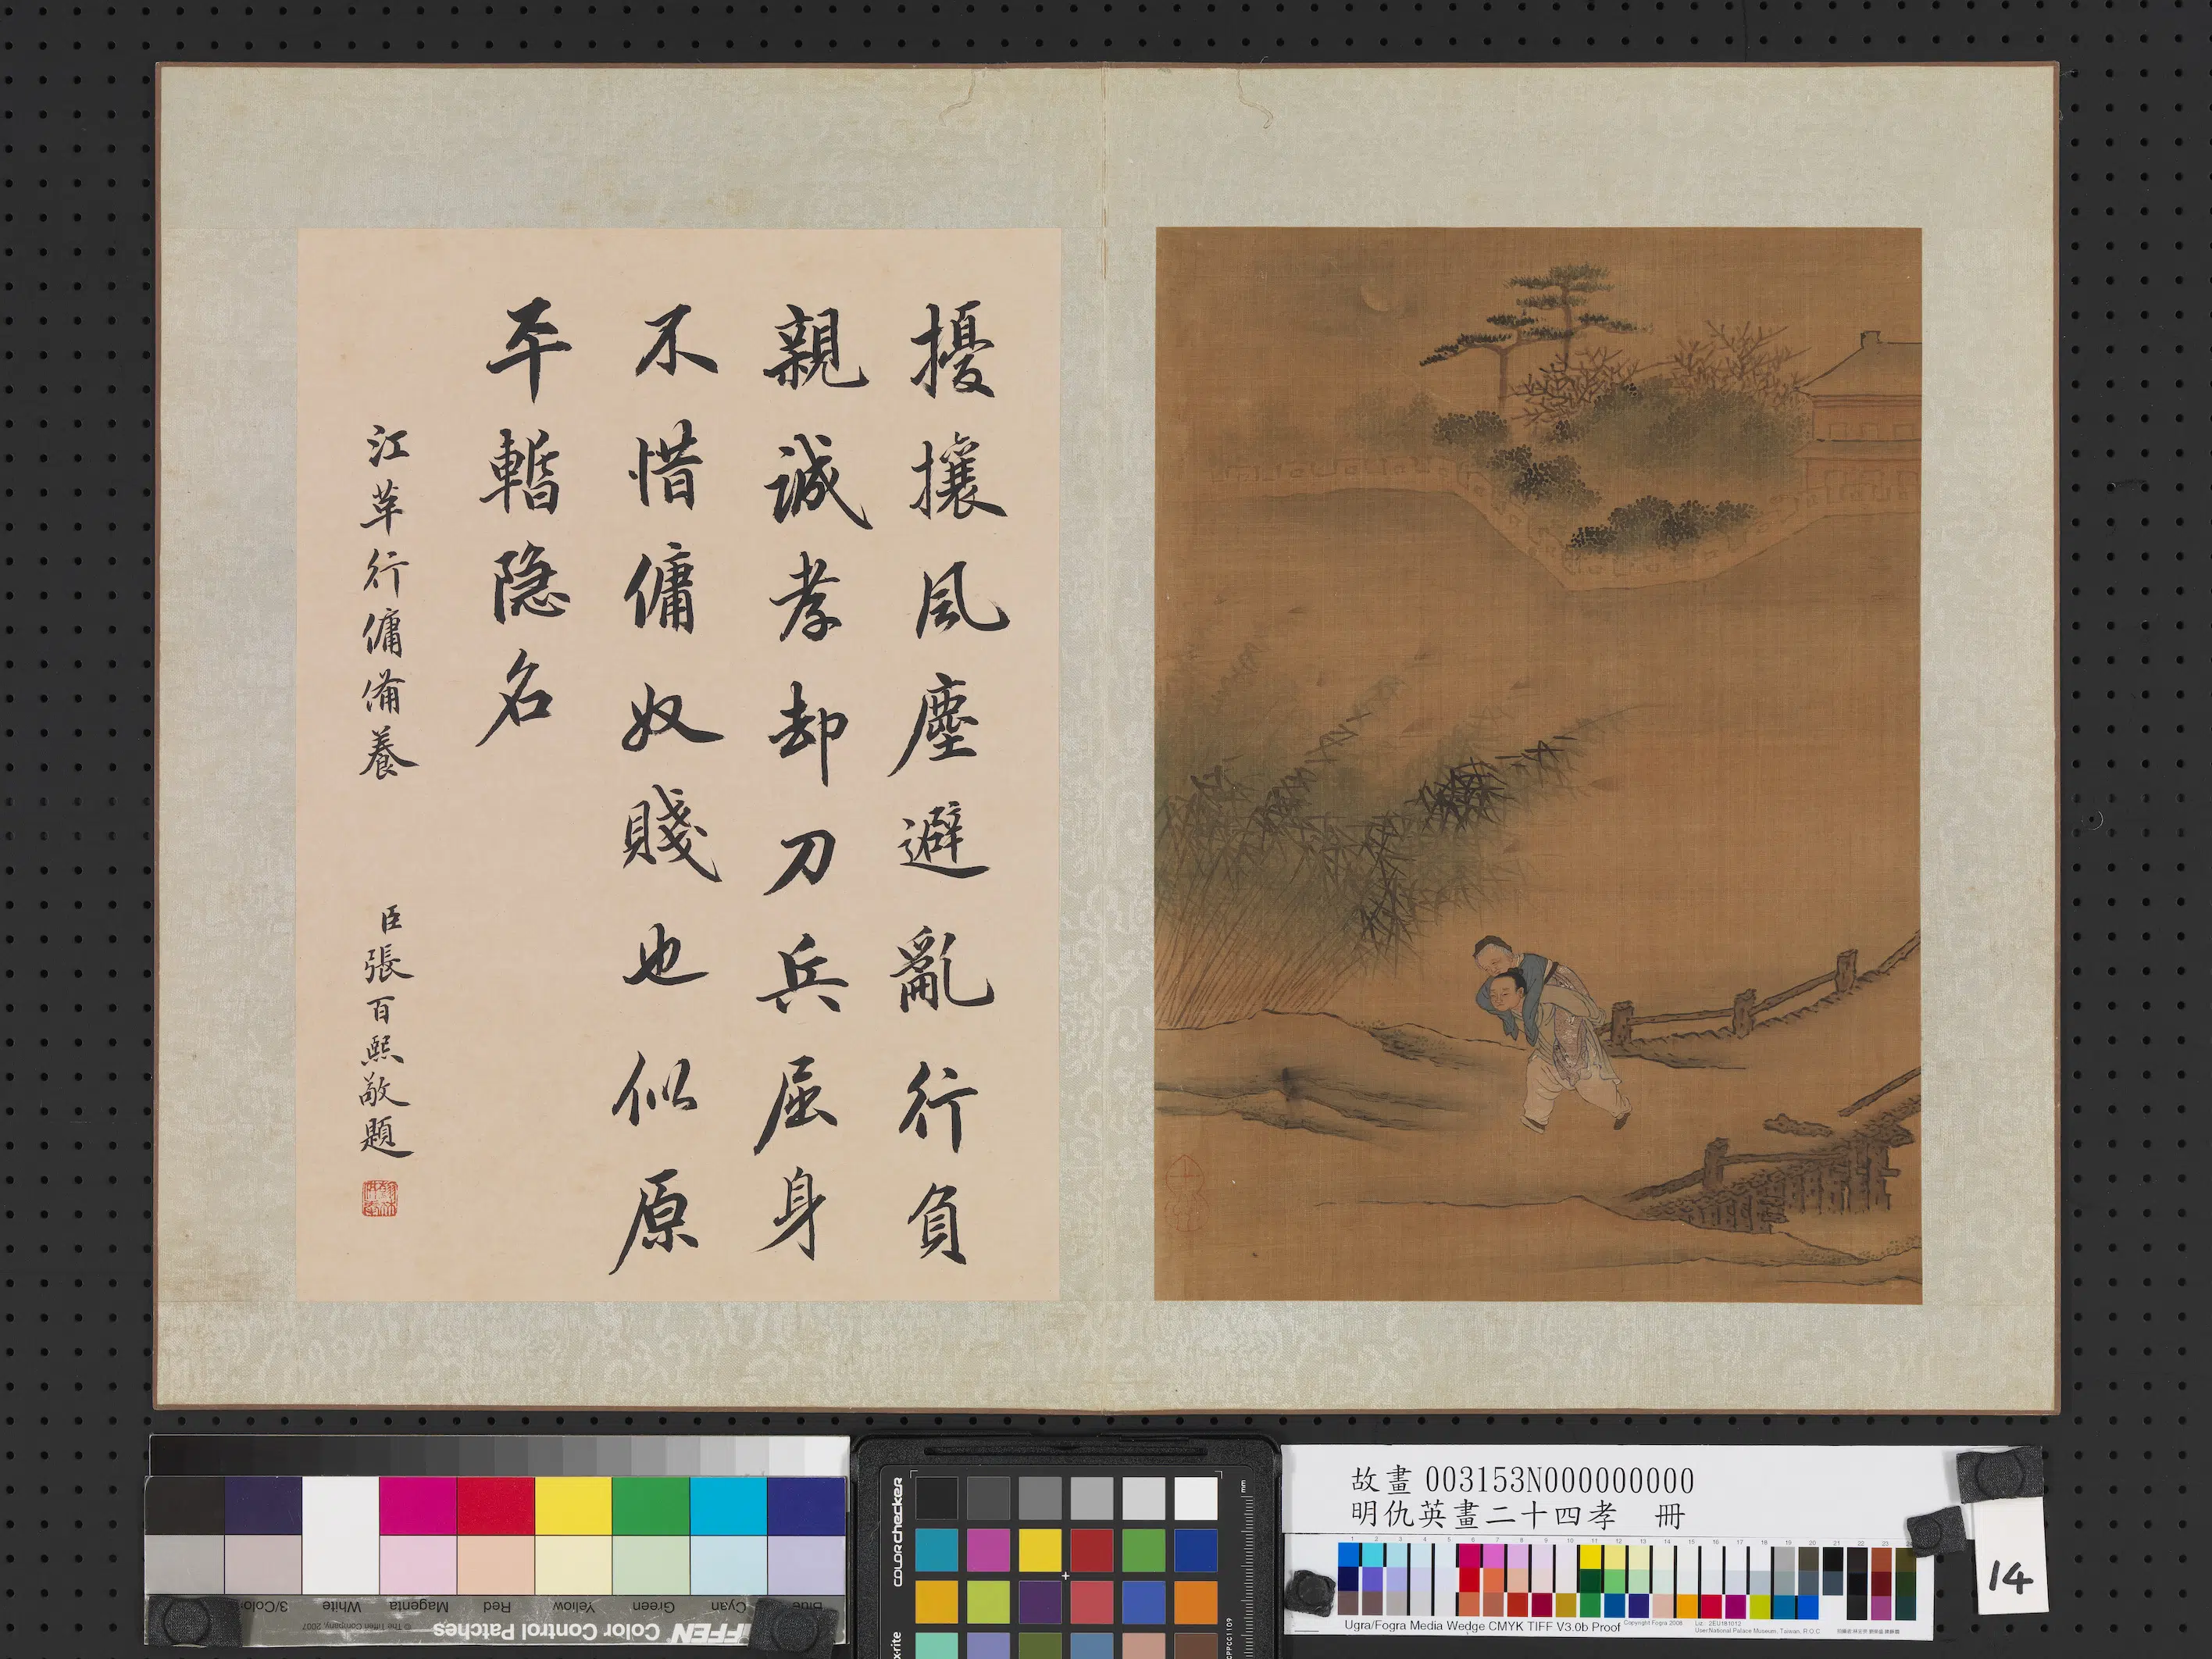 擾攘風塵避亂行負
親誠孝却刀兵屈身
不惜傭奴賤也似原
平暫隐名
江革行傭備養
臣張百熙敬題
故畫 003153N000000000
明仇英畫二十四孝　冊
14
Ugra/Fogra Media Wedge CMYK TIFF V3.0b Proof
Copyright Fogra 2008
User:National Palace Museum, Taiwan, R.O.C
colorchecker
x-rite
mm
Blue
Cyan
Green
Yellow
Red
Magenta
White
3/Color
© The Tiffen Company, 2007
IFFEN Color Control Patches